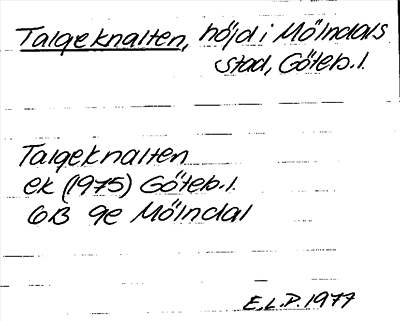 Talgeknalten, höjd i Mölndals
stad, Göteb.l.
Talgeknalten
ek (1975) Göteb.l.
6B 9e Mölndal
E.L.P. 1977